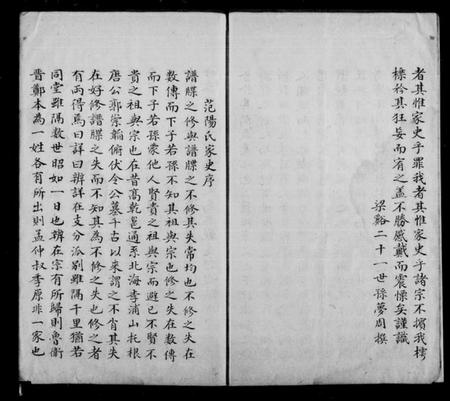 者其惟家史乎罪我者其惟家史乎諸宗不擯我樗
櫟矜其狂妄而宥之盖不勝感戴而震慄矣謹識
梁谿二十一世孫夢周撰
范陽氏家史序
譜牒之修與譜牒之不修其失常均也不修之失在
數傳而下子若孫不知其祖與宗也修之失在數傳
而下子若孫蒙他人賢貴之祖與宗而避己不賢不
貴之祖與宗也在昔高乾邕通系北海李浦山托根
唐公郭崇韜俯伏令公墓千古以來謂之不肖其失
在好修譜牒之失而不知其為不修之失也修之者
有兩得焉曰詳曰辨詳在支分派別雖隔千里猶若
同堂雖隔數世昭如一日也辨在宗有所歸則魯衛
晋鄭本為一姓各有所出則孟仲叔季原非一家也